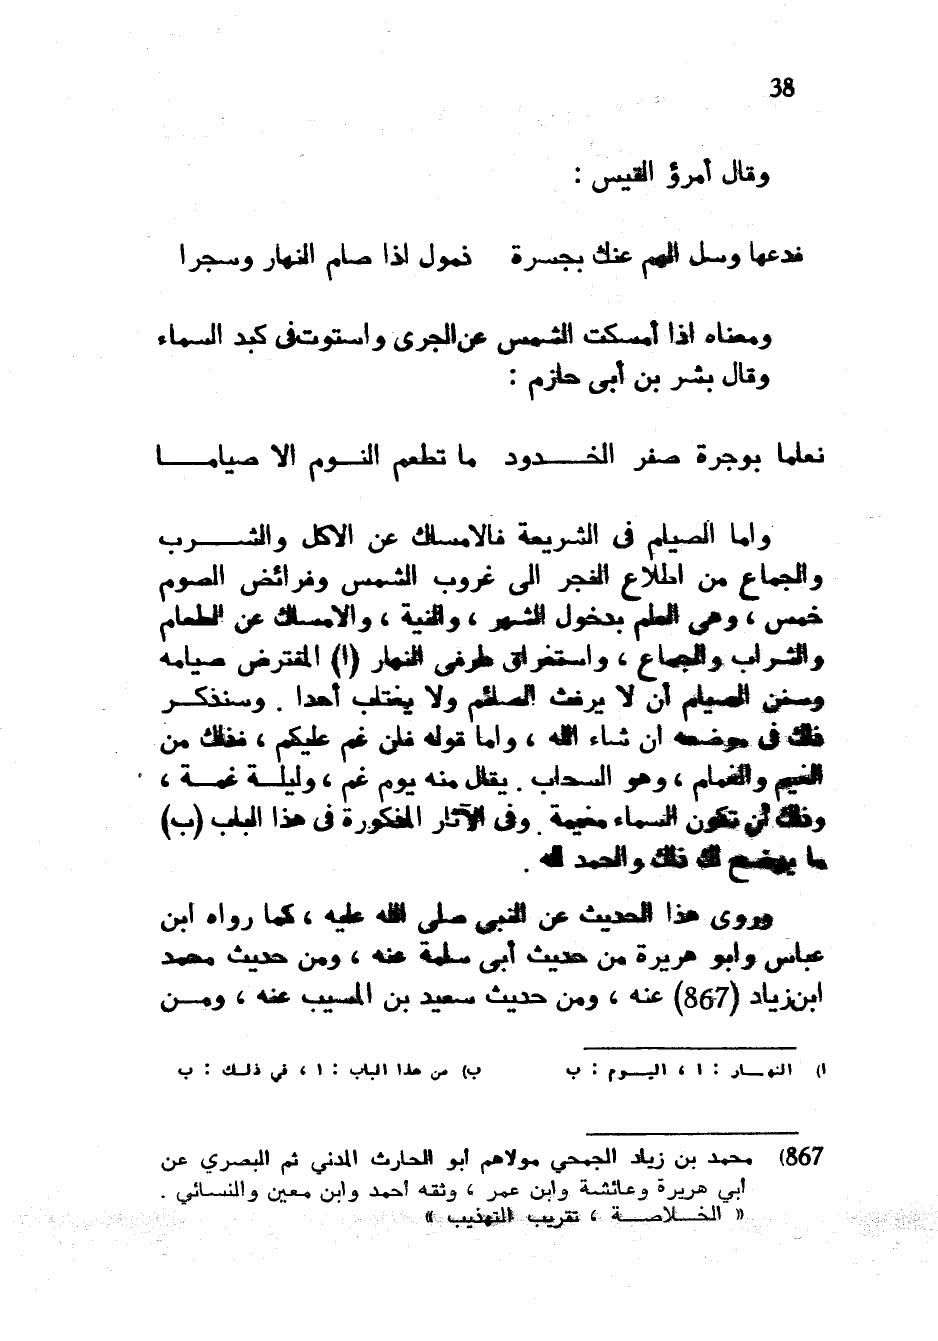 38
وقال أمرؤ القيس :
فدعها وسل الهم عنك بجسرة ذمول اذا صام النهار وسجرا
ومعناه اذا أمسكت الشمس عن الجرى واستوت فى كبد السماء
وقال بشر بن أبى حازم :
نعاما بوجرة صفر الخدود ما تطعم النوم الا صياما
واما الصيام فى الشريعة فالامساك عن الاكل والشرب
والجماع من اطلاع الفجر الى غروب الشمس وفرائض الصوم
خمس ، وهى العلم بدخول الشهر ، والنية ، والامساك عن الطعام
والشراب والجماع ، واستغراق طرفى النهار (ا) المفترض صيامه
وسنن الصيام أن لا يرفث الصائم ولا يغتاب أحدا . وسنذكر
ذلك فى موضعه ان شاء الله ، واما قوله فان غم عليكم ، فذلك من
الغيم والغمام ، وهو السحاب . يقال منه يوم غم ، وليلة غمة ،
وذلك أن تكون السماء مغيمة . وفى الآثار المذكورة فى هذا الباب (ب)
ما يوضح لك ذلك والحمد لله .
وروى هذا الحديث عن النبي صلى الله عليه ، كما رواه ابن
عباس وابو هريرة من حديث أبى سلمة عنه ، ومن حديث محمد
ابن زياد (867) عنه ، ومن حديث سعيد بن المسيب عنه ، ومن
ا) النهار : ا ، اليوم : ب ب) من هذا الباب : ا ، في ذلك : ب
867) محمد بن زياد الجمحي مولاهم أبو الحارث المدني ثم البصري عن
أبي هريرة وعائشة وابن عمر ، وثقه أحمد وابن معين والنسائي .
« الخلاصة ، تقريب التهذيب »